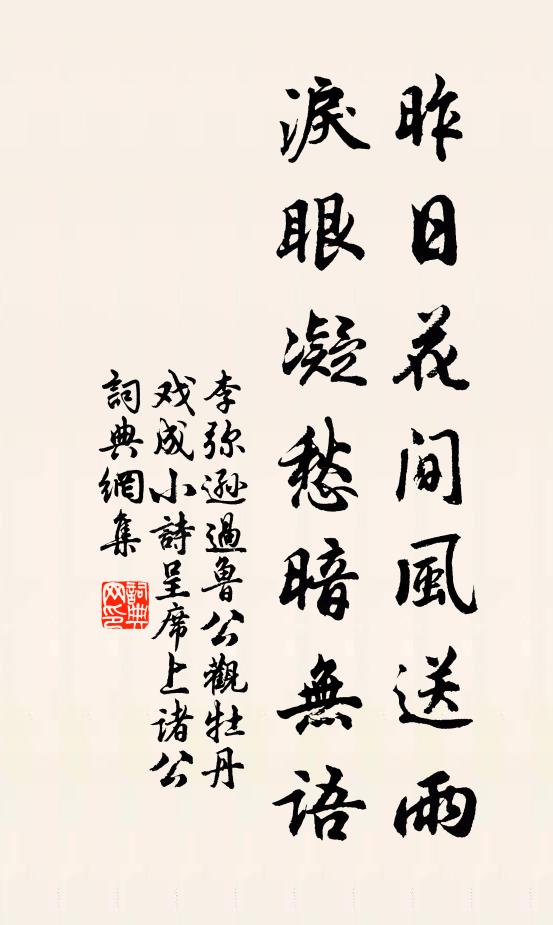 昨日花間風送雨
淚眼凝愁暗無語
李弥遜過魯公觀牡丹
戏成小詩呈席上诸公
詞典網集
詞典网印